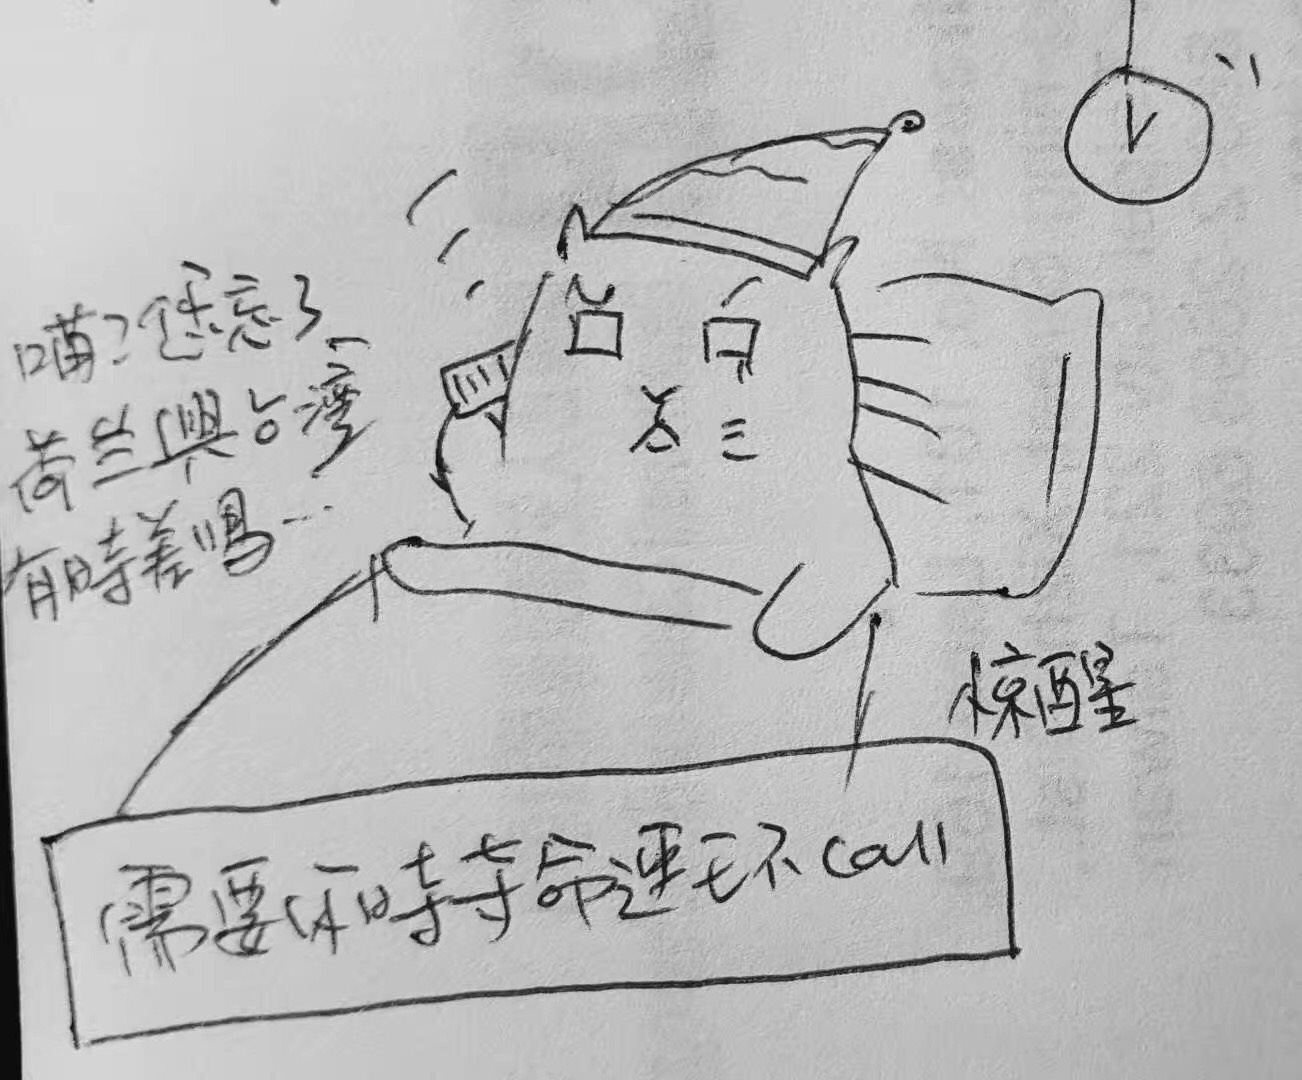 喵？你忘了
荷兰與台灣
有時差嗎…
惊醒
需要你時等命運它不call